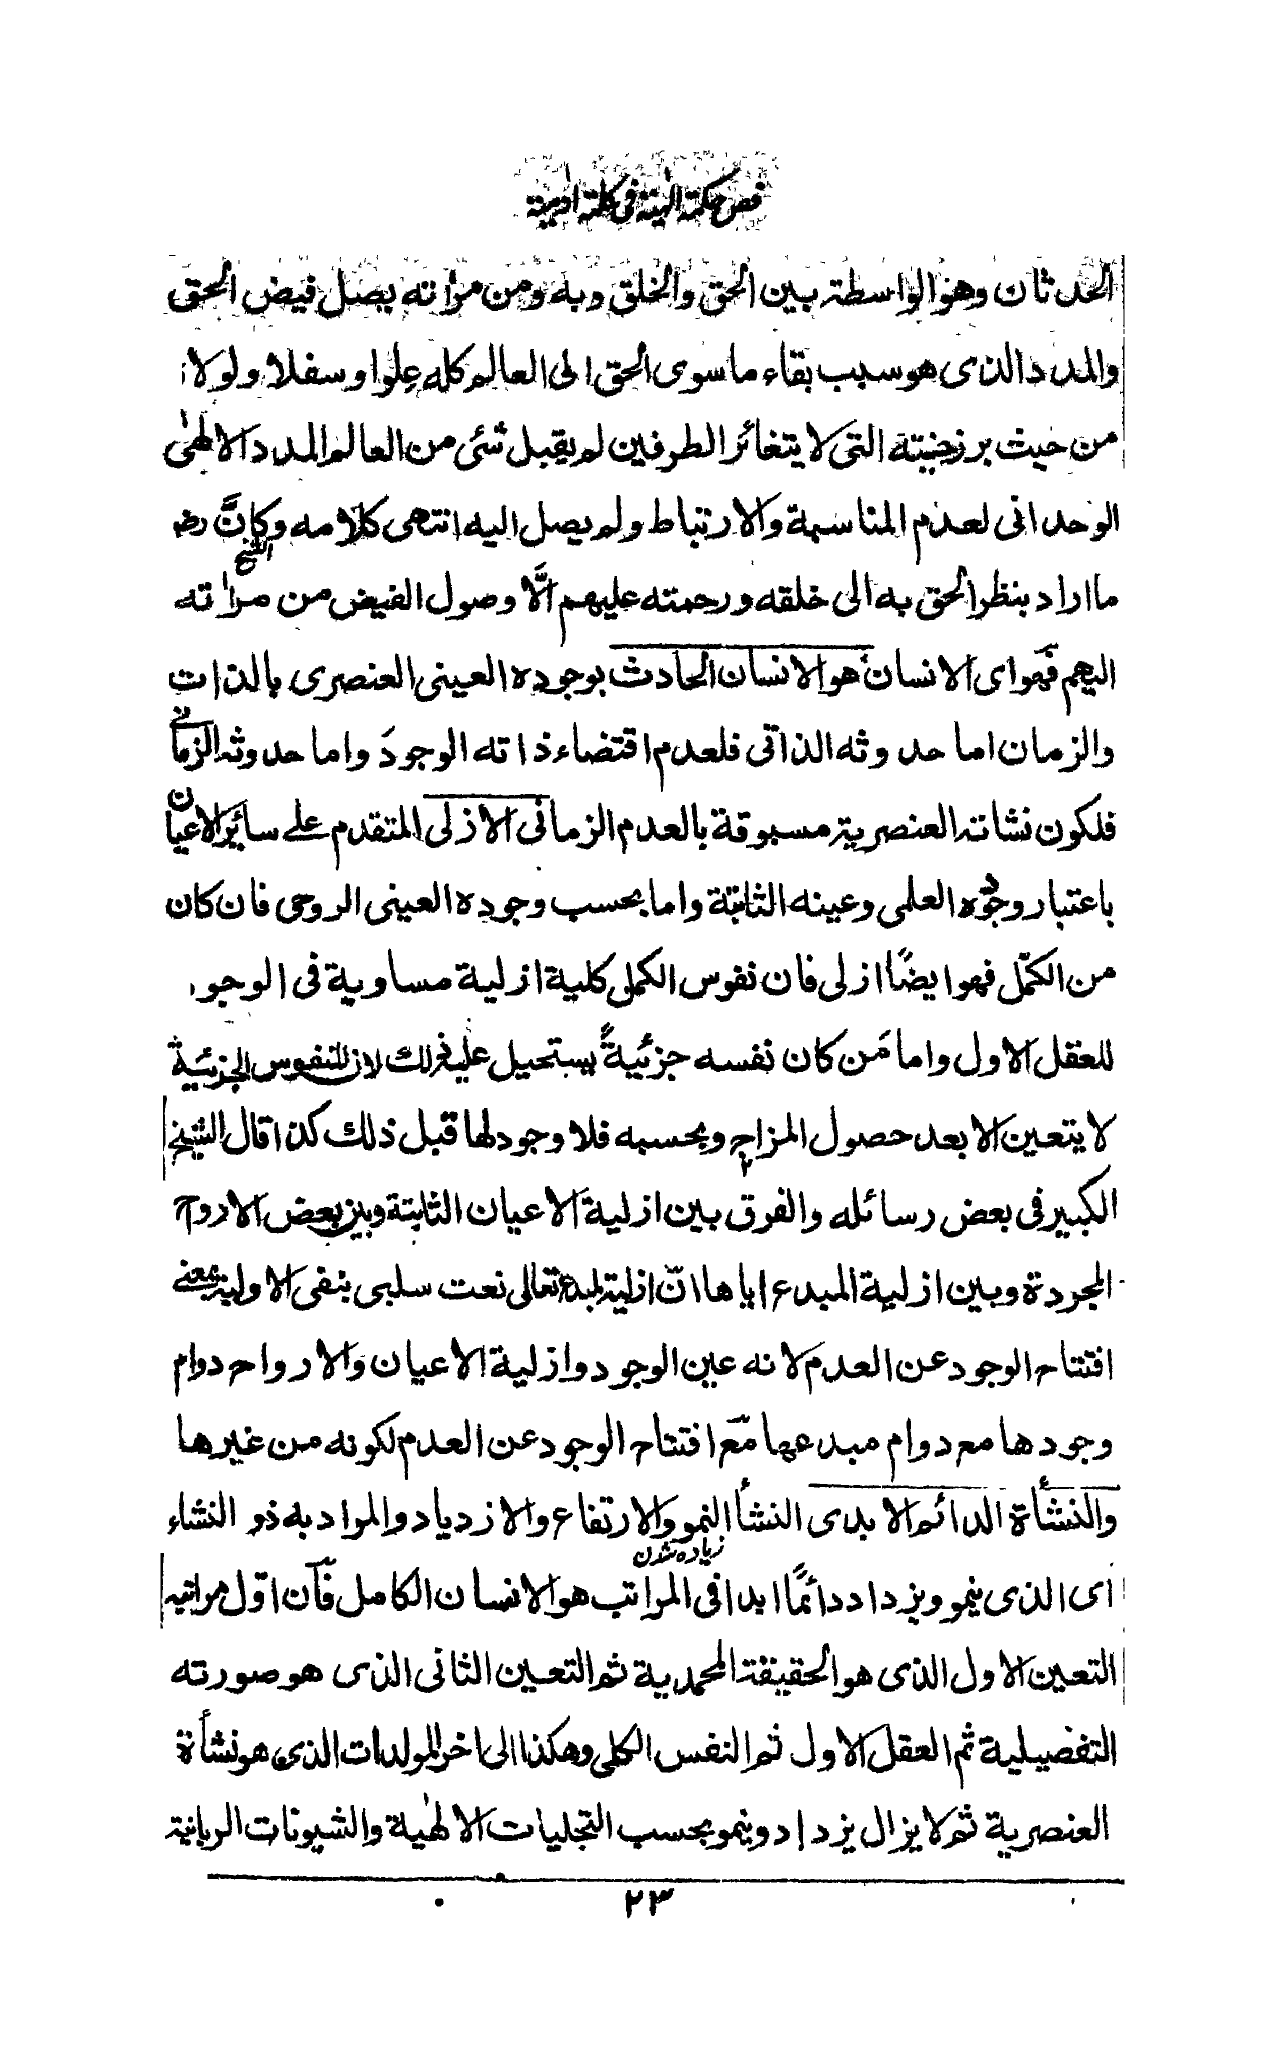 فص حكمة الهية فى كلمة ادمية
الحدثان وهو الواسطة بين الحق والخلق وبه ومن مراته يصل فيض الحق
والمدد الذى هو سبب بقاء ما سوى الحق الى العالم كله علوا وسفلا ولولا
من حيث برزخيته التى لا يتغائر الطرفين لم يقبل شئ من العالم المدد الالهى
الوحدانى لعدم المناسبة والارتباط ولم يصل اليه انتهى كلامه وكانَّ الشيخ رضـ
ما اراد بنظر الحق به الى خلقه ورحمته عليهم الَّا وصول الفيض من مراته
اليهم فهو اى الانسان هو الانسان الحادث بوجوده العينى العنصرى بالذات
والزمان اما حدوثه الذاتى فلعدم اقتضاء ذاته الوجودَ واما حدوثه الزمانى
فلكون نشاته العنصرية مسبوقة بالعدم الزمانى الازلى المتقدم على سائر الاعيان
باعتبار وجوده العلمى وعينه الثابتة واما بحسب وجوده العينى الروحى فان كان
من الكمّل فهو ايضًا ازلى فان نفوس الكمل كلية ازلية مساوية فى الوجود
للعقل الاول واما مَن كان نفسه جزئيةً يستحيل عليه ذلك لان للنفوس الجزئية
لا يتعين الا بعد حصول المزاج وبحسبه فلا وجود لها قبل ذلك كذا قال الشيخ
الكبير فى بعض رسائله والفرق بين ازلية الاعيان الثابتة وبين بعض الارواح
المجردة وبين ازلية المبدع اياها انّ ازلية المبدع تعالى نعت سلبى بنفى الاولية بمعنى
افتتاح الوجود عن العدم لانه عين الوجود وازلية الاعيان والارواح دوام
وجودها مع دوام مبدعها مع افتتاح الوجود عن العدم لكونه من غيرها
والنشأة الدائم الابدى النشأ النمو والارتفاع والازدياد والمراد به ذو النشاء
زياده شدن
اى الذى ينمو ويزداد دائمًا ابدا فى المراتب هو الانسان الكامل فان اوّل مراتبه
التعين الاول الذى هو الحقيقة المحمدية ثم التعين الثانى الذى هو صورته
التفصيلية ثم العقل الاول ثم النفس الكلى وهكذا الى اخر المولدات الذى هو نشأة
العنصرية ثم لا يزال يزداد وينمو بحسب التجليات الالهٰية والشيونات الربانية
٢٣